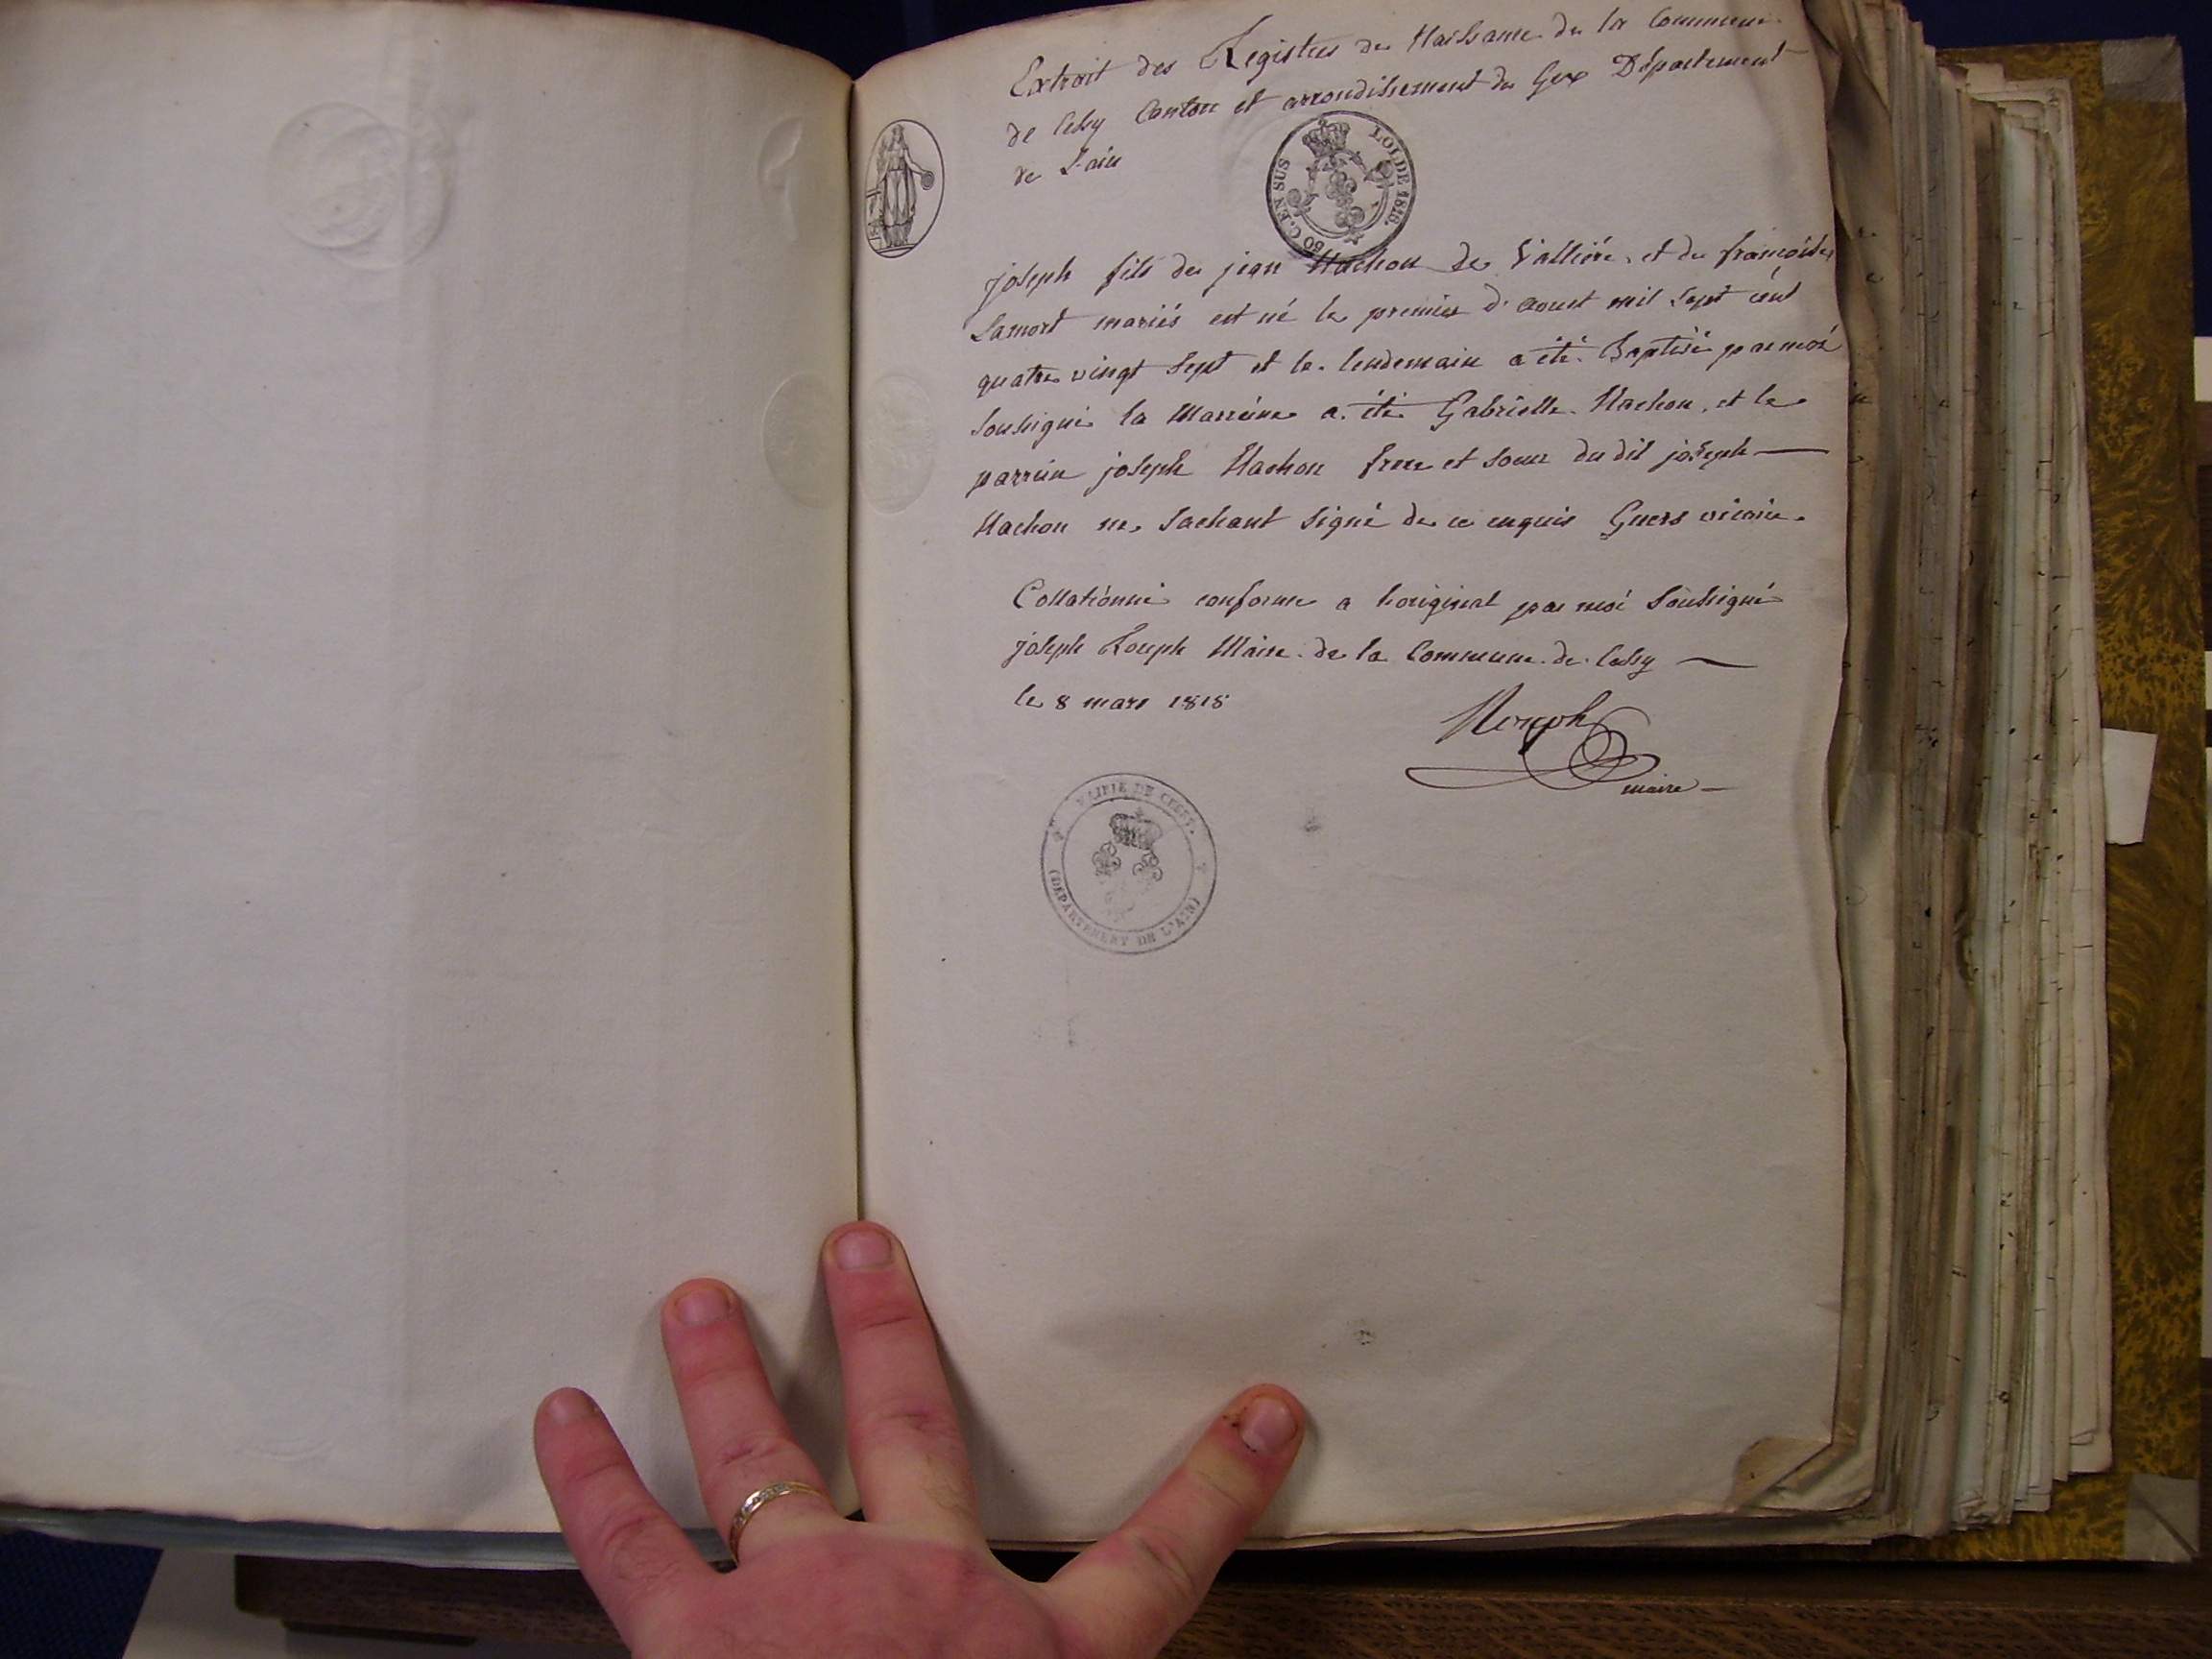 Extrait des Registres de Naissance de la Commune
de Cessy Canton et arrondissement de Gex Département
de L'ain
LOI DE 1816.
50 C. EN SUS
joseph fils de jean Nachon de Vallière et de françoise
Lamort mariés est né le premier d'aoust mil sept cent
quatre vingt sept et le lendemain a été Baptisé par moi
soussigné la Marreine a été Gabrielle Nachon, et le
parrein joseph Nachon frere et soeur du dit joseph —
Nachon ne sachant signé de ce enquis Guers vicaire.
Collationné conforme a l'original par moi soussigné
joseph Rouph Maire de la Commune de Cessy —
le 8 mars 1818
Rouph
maire —
MAIRIE DE CESSY.
(DEPARTEMENT DE L'AIN)